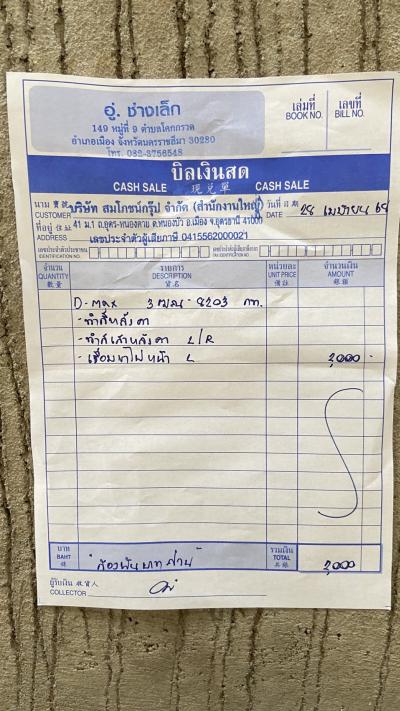 อู่. ช่างเล็ก
149 หมู่ที่ 9 ตำบลโคกกรวด
อำเภอเมือง จังหวัดนครราชสีมา 30280
โทร. 082-3756548
เล่มที่ เลขที่
BOOK NO. BILL NO.
บิลเงินสด
CASH SALE 現兌單 CASH SALE
นาม บริษัท สมโภชน์กรุ๊ป จำกัด (สำนักงานใหญ่) วันที่ 28 เมษายน 68
CUSTOMER DATE
ที่อยู่ 41 ม.1 ถ.อุดร-หนองคาย ต.หนองบัว อ.เมือง จ.อุดรธานี 41000
ADDRESS เลขประจำตัวผู้เสียภาษี 0415562000021
จำนวน รายการ หน่วยละ จำนวนเงิน
QUANTITY DESCRIPTION UNIT PRICE AMOUNT
數量 貨名 備註 銀額
D-max 8203 กท.
- ทำสีหลังคา
- ทำสีเสาหลังคา L/R
- เชื่อมขาไฟหน้า L 2,000 -
บาท รวมเงิน
BAHT TOTAL 2,000
ผู้รับเงิน 收貨人
COLLECTOR